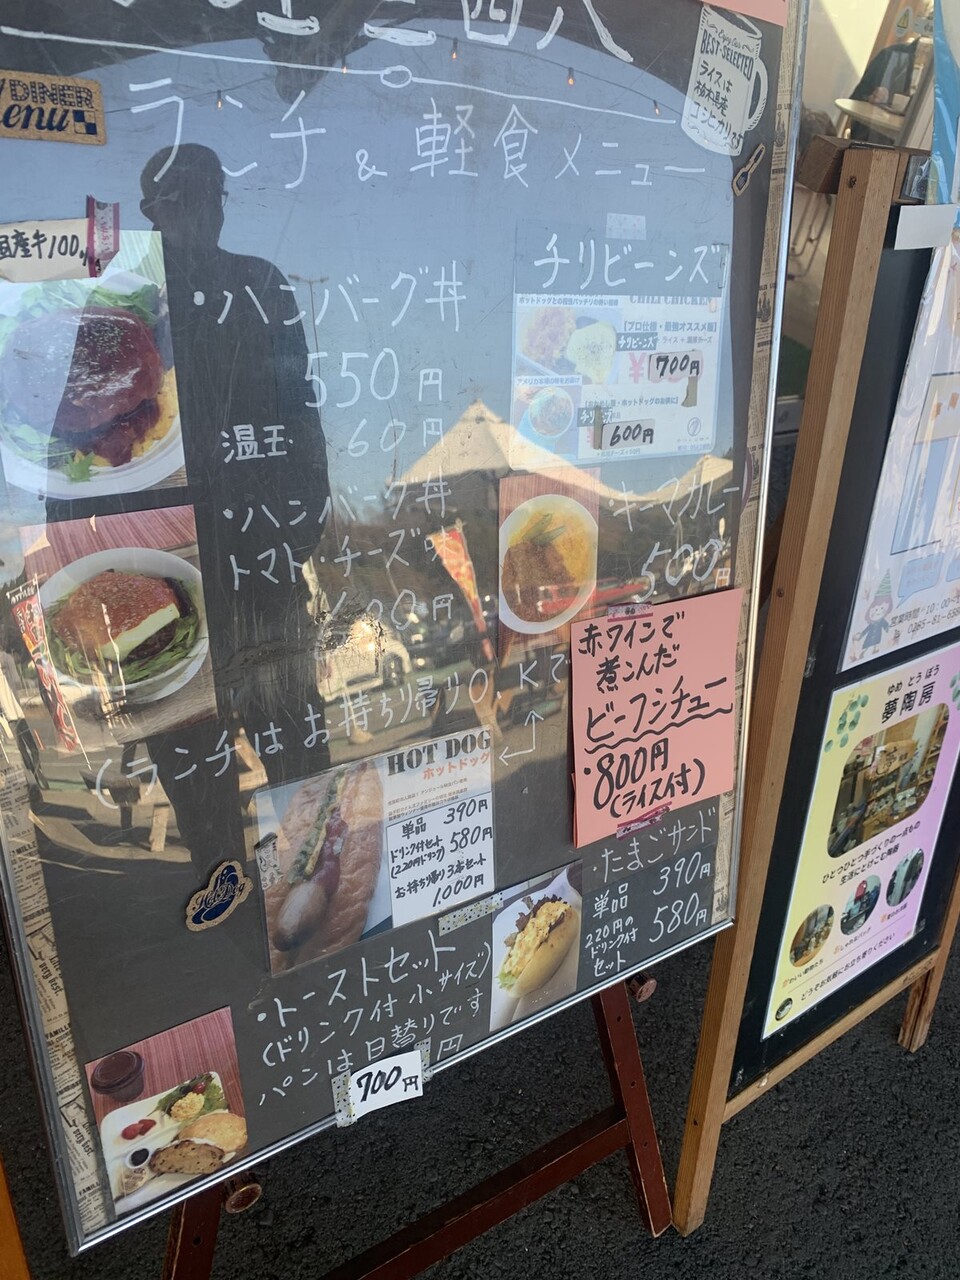 DINER
menu
BEST-SELECTED
ライスは
栃木県産
コシヒカリです
ランチ & 軽食メニュー
国産牛100%
・ハンバーグ丼
550円
温玉 60円
・ハンバーグ丼
トマト・チーズ
600円
チリビーンズ
【プロ仕様・最強オススメ飯】
チリビーンズ
700円
600円
キーマカレー
500
(ランチはお持ち帰りO.Kで
赤ワインで
煮こんだ
ビーフシチュー
・800円
(ライス付)
HOT DOG
ホットドッグ
単品 390円
ドリンク付セット 580円
(220円ドリンク)
お持ち帰り3本セット
1.000円
Hot Dog
・たまごサンド
単品 390円
220円の
ドリンク付
セット 580円
・トーストセット
(ドリンク付 小サイズ)
パンは日替りです
700円
ゆめ とう ぼう
夢陶房
ひとつひとつ手づくりの一点もの
生活にとけこむ陶器
どうぞお気軽にお立ち寄りください